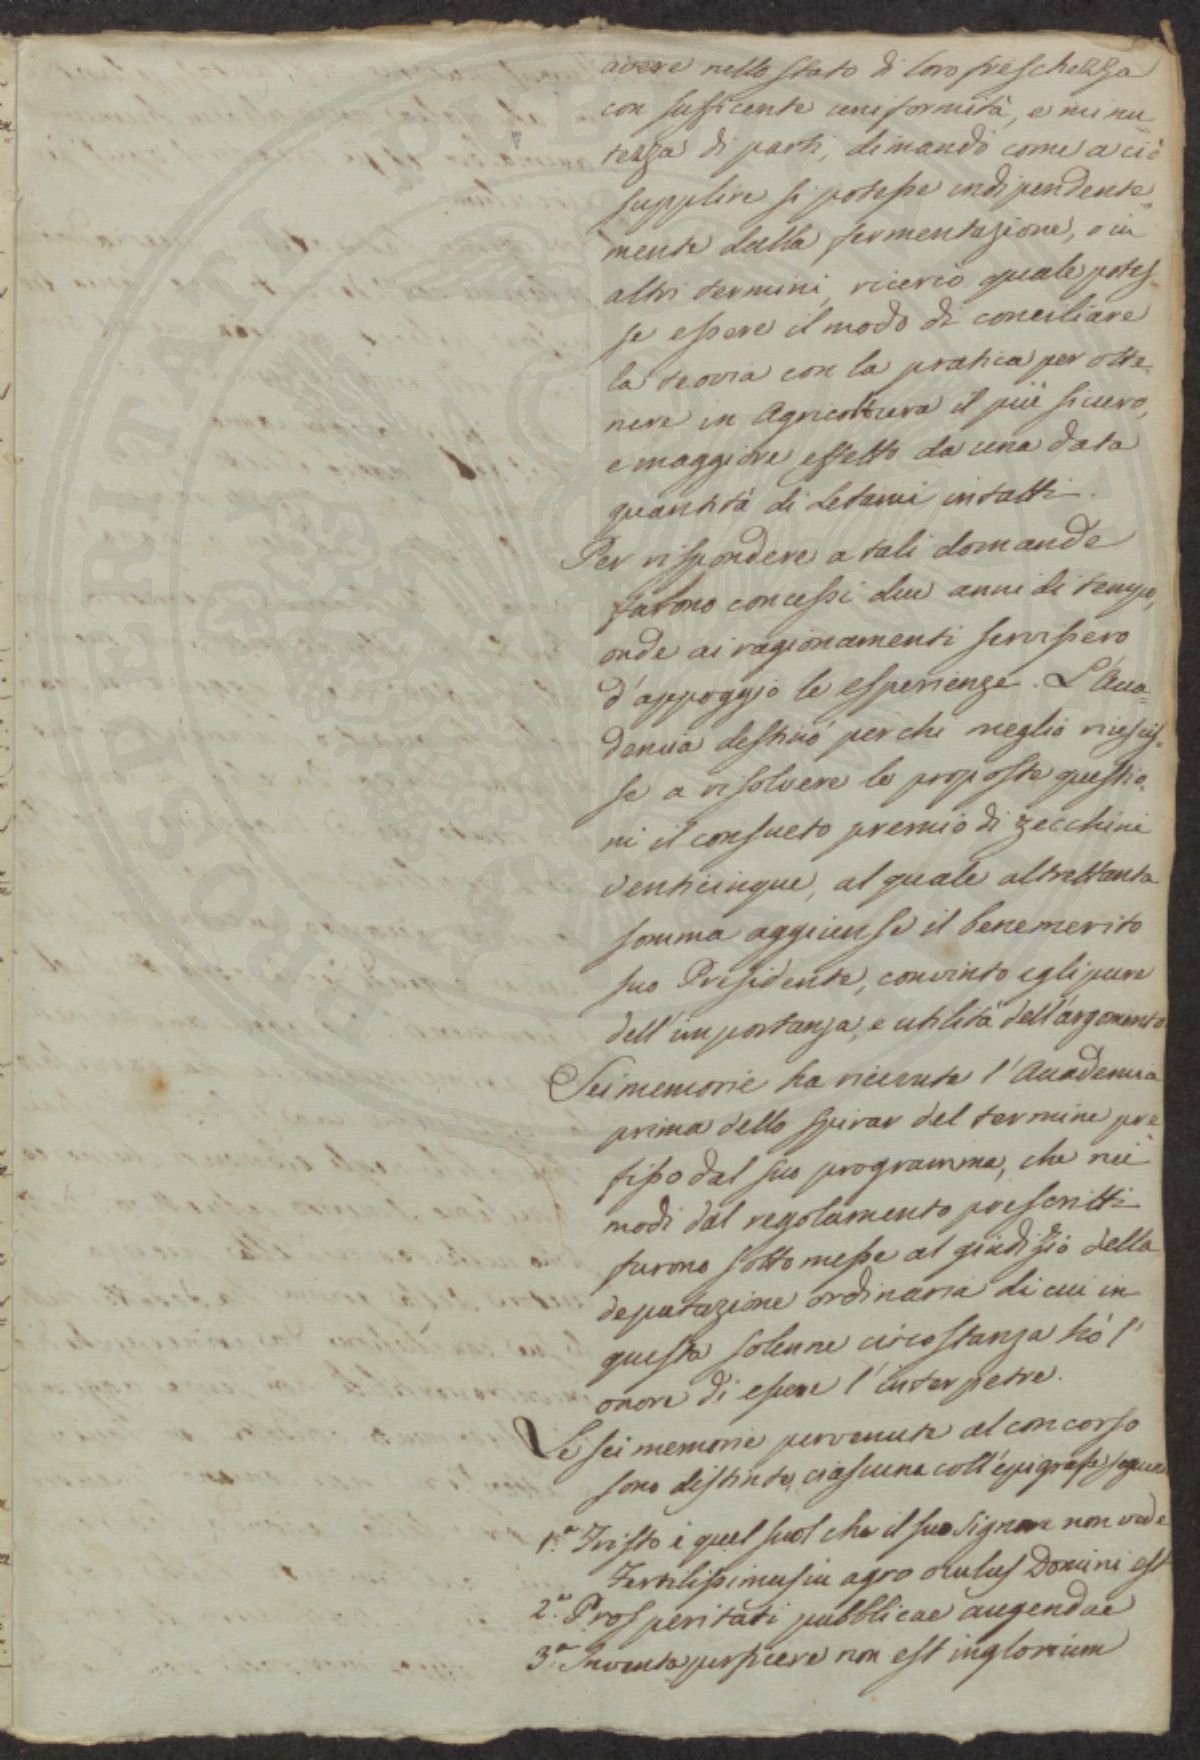 avere nello stato di loro freschezza
con sufficente uniformità, e minu=
tezza di parti, dimandò come a ciò
supplire si potesse indipendente=
mente dalla fermentazione, o in
altri termini, ricercò quale potes
se essere il modo di conciliare
la teoria con la pratica per otte=
nere in Agricoltura il più sicuro,
e maggiore effetto da una data
quantità di Letami intatti.
Per rispondere a tali domande
furono concessi due anni di tempo,
onde ai ragionamenti servissero
d'appoggio le esperienze. L'Acca=
demia destinò per chi meglio riuscis=
se a risolvere le proposte questio=
ni il consueto premio di zecchini
venticinque, al quale altrettanta
somma aggiunse il benemerito
suo Presidente, convinto egli pure
dell'importanza, e utilità dell'argomento
Sei memorie ha ricevute l'Accademia
prima dello spirar del termine pre
fisso dal suo programma, che nei
modi dal regolamento prescritti
furono sottomesse al giudizio della
deputazione ordinaria di cui in
questa solenne circostanza hò l'
onore di essere l'interpetre.
Le sei memorie pervenute al concorso
sono distinte, ciascuna coll'epigrafe seguen
1.a Tristo è quel suol che il suo Signore non vede
Fertilissimus in agro oculus Domini est
2.a Prosperitati pubblicae augendae
3.a Inventa perficere non est inglorium
PROSPERITATI PUBLICAE